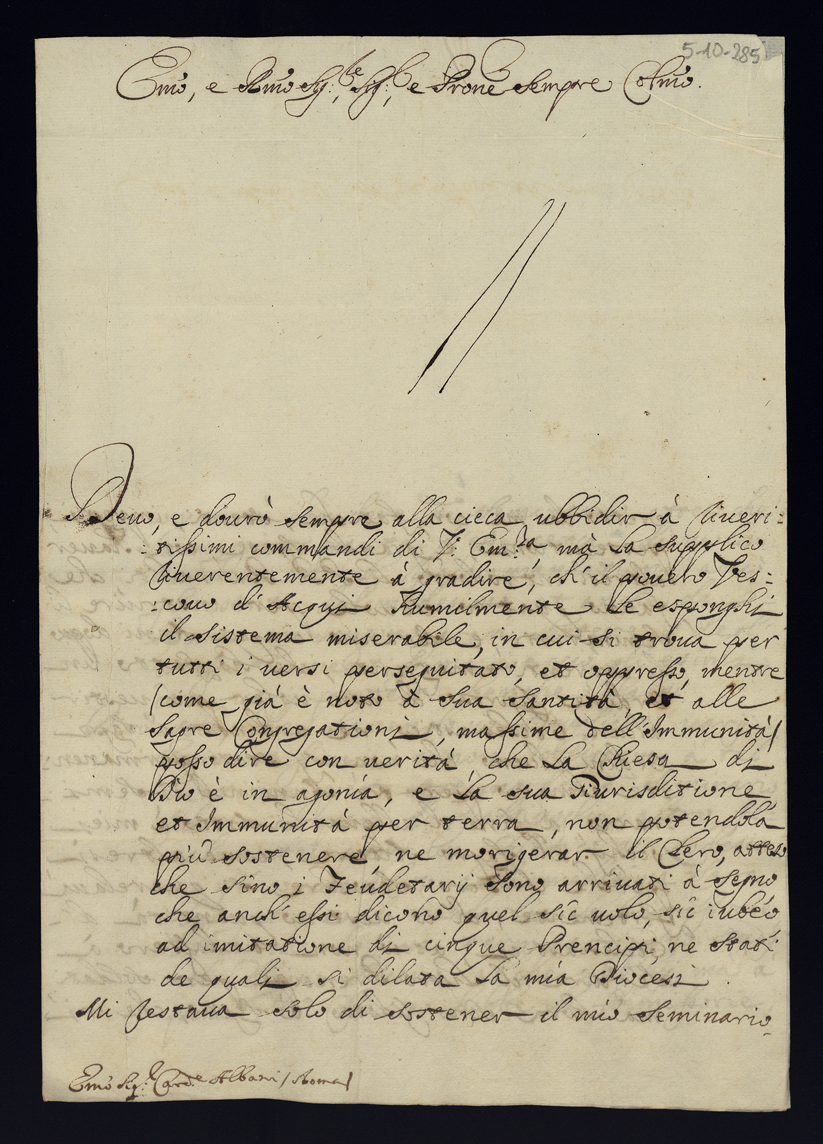 5-10-285
Emo, e Rmo Sig:re, Sig:r, e Prone Sempre Colmo.
Devo, e dourò sempre alla cieca ubbidir à riueri=
:tissimi commandi di V: Em:za mà la supplico
riuerentemente à gradire, ch'il pouero Ves=
:couo d'Acqui humilmente le esponghi
il sistema miserabile, in cui si troua per
tutti i versi perseguitato, et oppresso, mentre
/come già è noto à sua santità, et alle
sagre Congregationi, massime dell'Immunità/
posso dire con verità che la Chiesa di
Dio è in agonia, e la sua Giurisditione,
et Immunità per terra, non potendola
più sostenere, ne morigerar il Clero, atteso
che sino i Feudetarij sono arrivati à segno
che anch'essi dicono quel sic uolo, sic iubeo
ad imitatione di cinque Prencipi, ne stati
de quali si dilata la mia Diocesi.
Mi restaua solo di sostener il mio seminario
Emo Sig:r Card:e Albani /Roma/